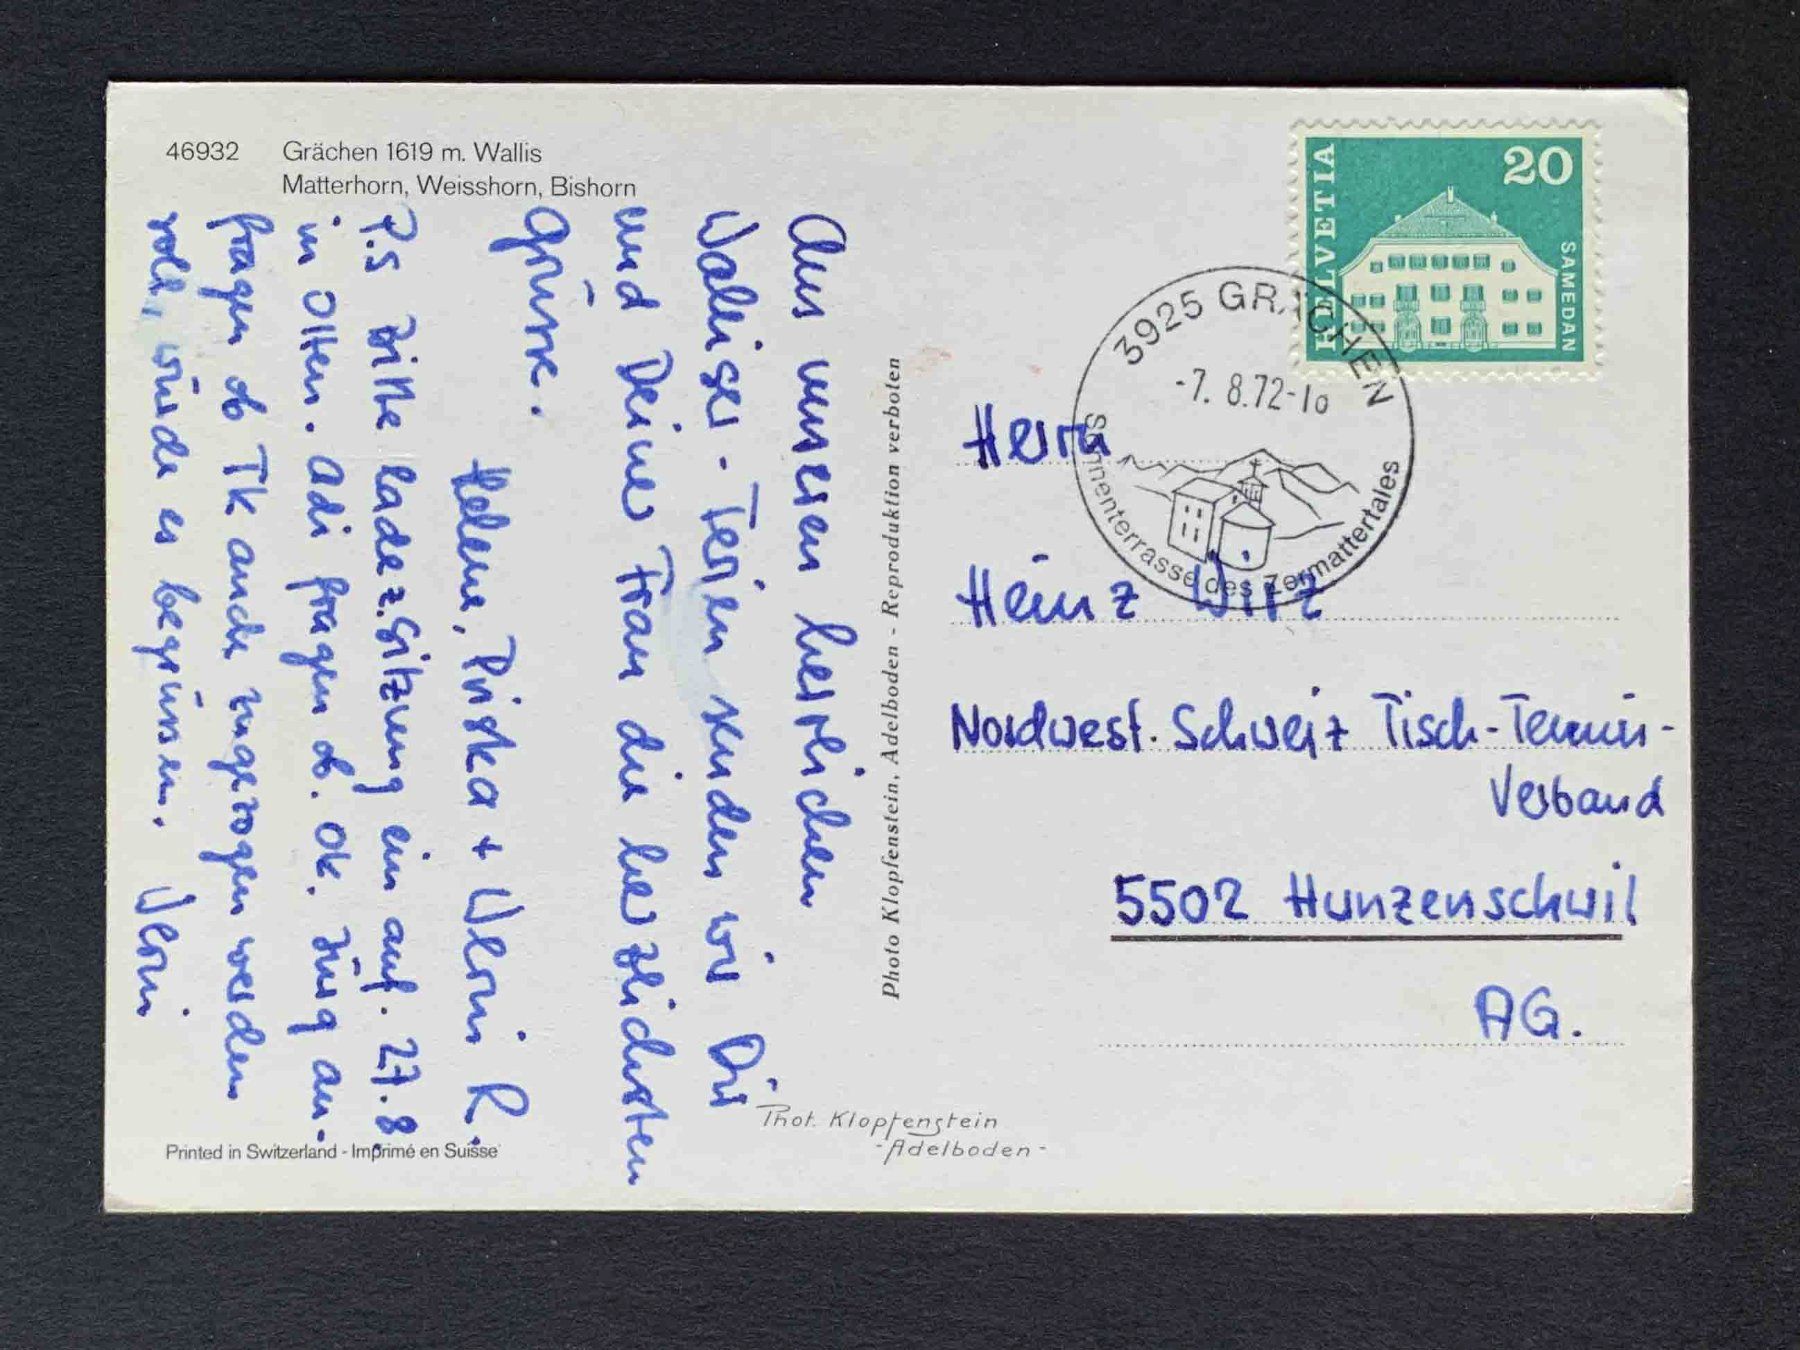 46932 Grächen 1619 m. Wallis
Matterhorn, Weisshorn, Bishorn
Aus unseren herrlichen
Waliser-Ferien senden wir Dir
und Deiner Frau die herzlichsten
Grüsse.
Helene, Priska + Vroni R.
P.S Bitte lade z. Sitzung ein auf. 27.8
in Olten. Adi fragen ob. ok. Jürg an-
fragen ob TK auch zugezogen werden
soll, würde es begrüssen. Vroni
Printed in Switzerland - Imprimé en Suisse
Photo Klopfenstein, Adelboden - Reproduktion verboten
Phot. Klopfenstein
-Adelboden-
HELVETIA
20
SAMEDAN
3925 GRÄCHEN
-7. 8.72-10
Sonnenterrasse des Zermattertales
Herrn
Heinz Wirz
Nordwest. Schweiz Tisch-Tennis-
Verband
5502 Hunzenschwil
AG.